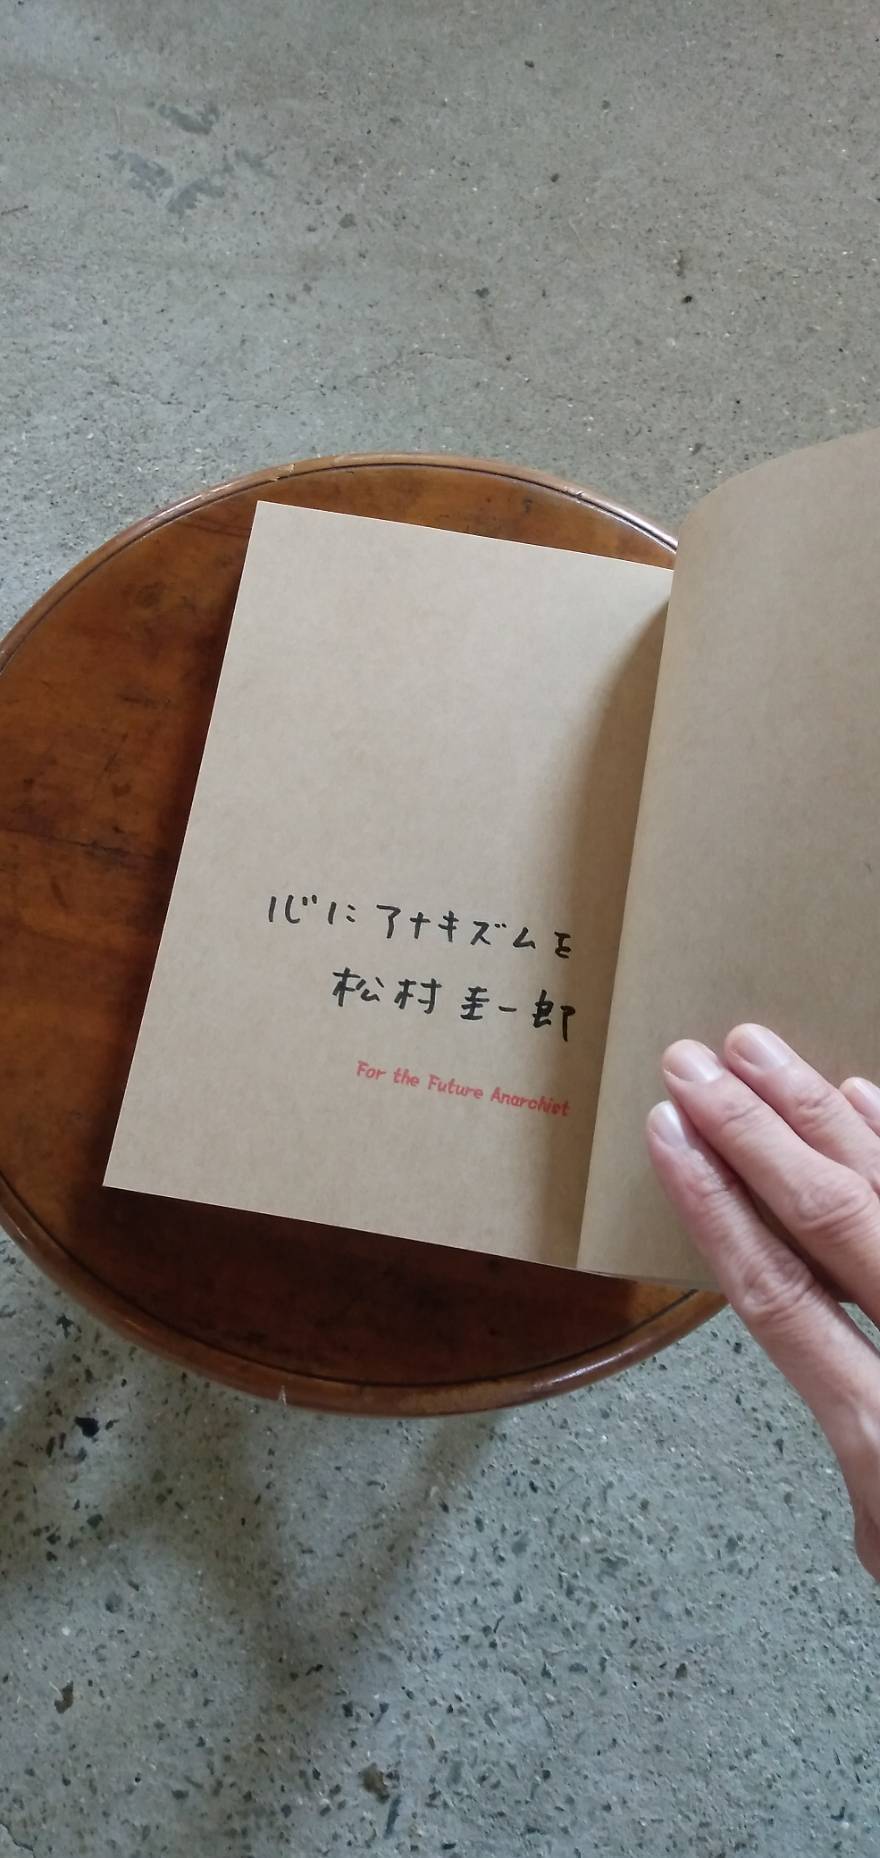 心にアナキズムを
松村圭一郎
For the Future Anarchist